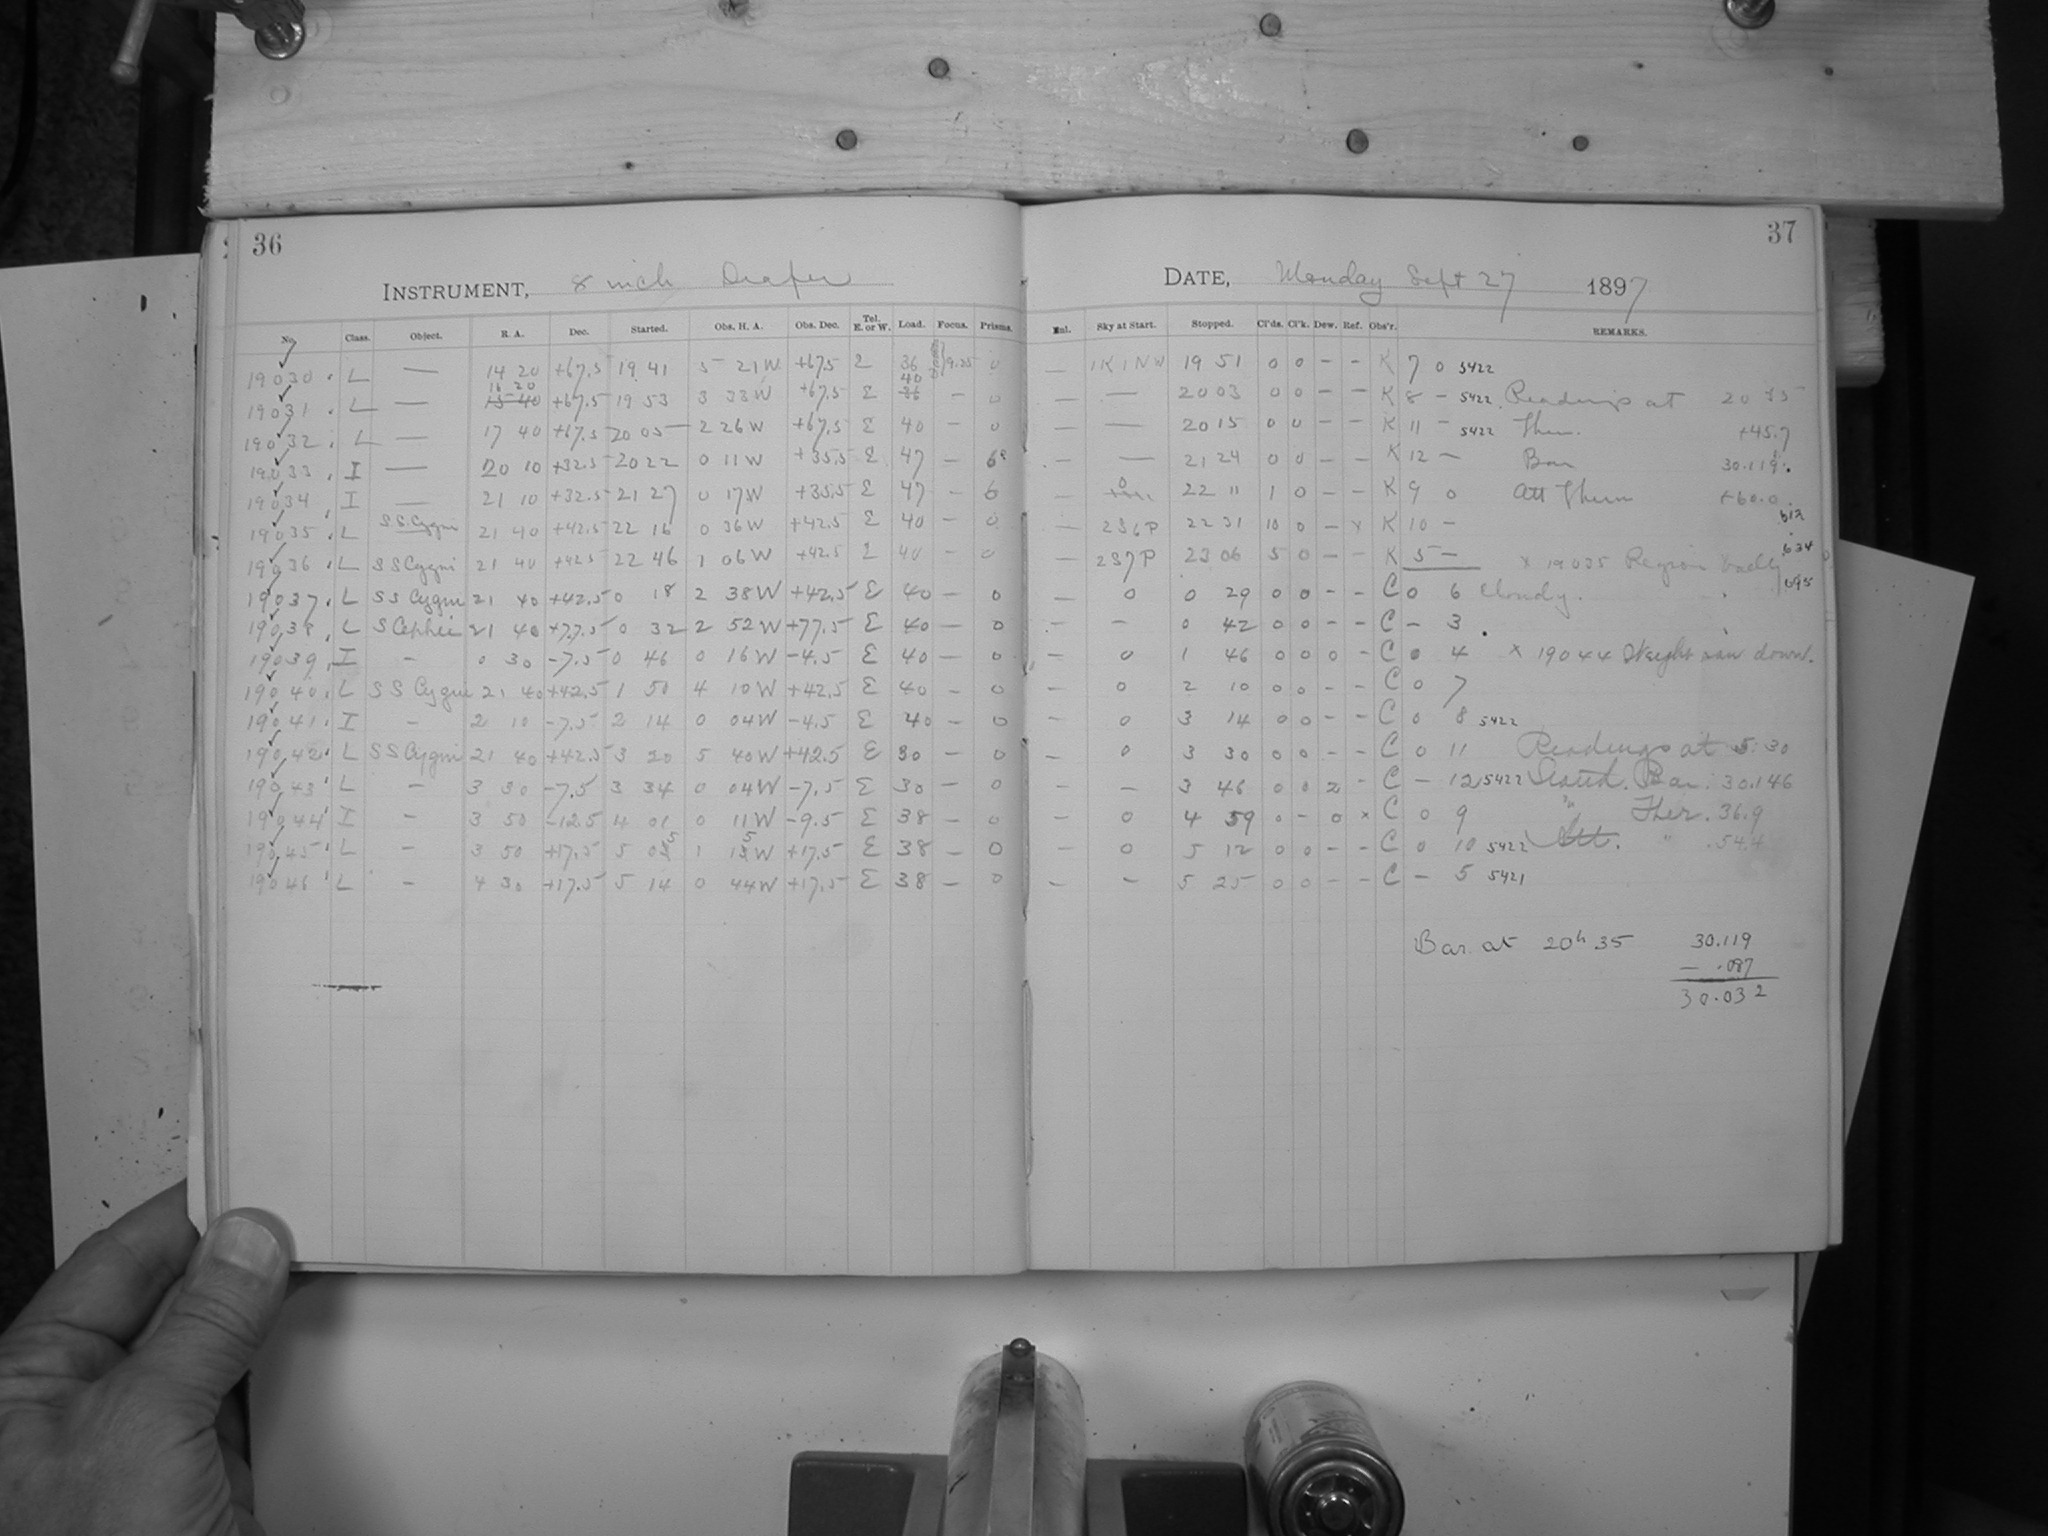 36
INSTRUMENT, 8 inch Draper
No. Class. Object. R. A. Dec. Started. Obs. H. A. Obs. Dec. Tel. E. or W. Load. Focus. Prisms.
19030 L — 14 20 +67.5 19 41 5 21 W +67.5 E 36 9.25 0
19031 L — 15 40 16 20 +67.5 19 53 3 33 W +67.5 E 36 40 — 0
19032 L — 17 40 +67.5 20 05 2 26 W +67.5 E 40 — 0
19033 I — 20 10 +32.5 20 22 0 11 W +35.5 E 47 — 6
19034 I — 21 10 +32.5 21 27 0 17 W +35.5 E 47 — 6
19035 L SS Cygni 21 40 +42.5 22 16 0 36 W +42.5 E 40 — 0
19036 L SS Cygni 21 40 +42.5 22 46 1 06 W +42.5 E 40 — 0
19037 L SS Cygni 21 40 +42.5 0 18 2 38 W +42.5 E 40 — 0
19038 L S Cephei 21 40 +77.5 0 32 2 52 W +77.5 E 40 — 0
19039 I — 0 30 -7.5 0 46 0 16 W -4.5 E 40 — 0
19040 L SS Cygni 21 40 +42.5 1 50 4 10 W +42.5 E 40 — 0
19041 I — 2 10 -7.5 2 14 0 04 W -4.5 E 40 — 0
19042 L SS Cygni 21 40 +42.5 3 20 5 40 W +42.5 E 30 — 0
19043 L — 3 30 -7.5 3 34 0 04 W -7.5 E 30 — 0
19044 I — 3 50 -12.5 4 01 0 11 W -9.5 E 38 — 0
19045 L — 3 50 +17.5 5 05 1 15 W +17.5 E 38 — 0
19046 L — 4 30 +17.5 5 14 0 44 W +17.5 E 38 — 0
37
DATE, Monday Sept 27 1897
Enl. Sky at Start. Stopped. Cl'ds. Cl'k. Dew. Ref. Obs'r. REMARKS.
— 1K1NW 19 51 0 0 — — K 7 0 5422
— — 20 03 0 0 — — K 8 — 5422 Readings at 20
— — 20 15 0 0 — — K 11 — 5422 Ther. +45.7
— — 21 24 0 0 — — K 12 — Bar 30.119
— 0 22 11 1 0 — — K 9 0 Att Therm +60.0
— 2S6P 22 31 10 0 — x K 10 — 612
— 2S7P 23 06 5 0 — — K 5 — x 19035 Region badly 634
— 0 0 29 0 0 — — C 0 6 Cloudy. 695
— — 0 42 0 0 — — C — 3
— 0 1 46 0 0 0 — C 0 4 x 19044 Weight ran down.
— 0 2 10 0 0 — — C 0 7
— 0 3 14 0 0 — — C 0 8 5422
— 0 3 30 0 0 — — C 0 11 Readings at 5:30
— — 3 46 0 0 2 — C — 12 5422 Stand. Bar. 30.146
— 0 4 59 0 — 0 x C 0 9 " Ther. 36.9
— 0 5 12 0 0 — — C 0 10 5422 Att. " 54.4
— — 5 25 0 0 — — C — 5 5421
Bar. at 20h 35 30.119
— .087
30.032